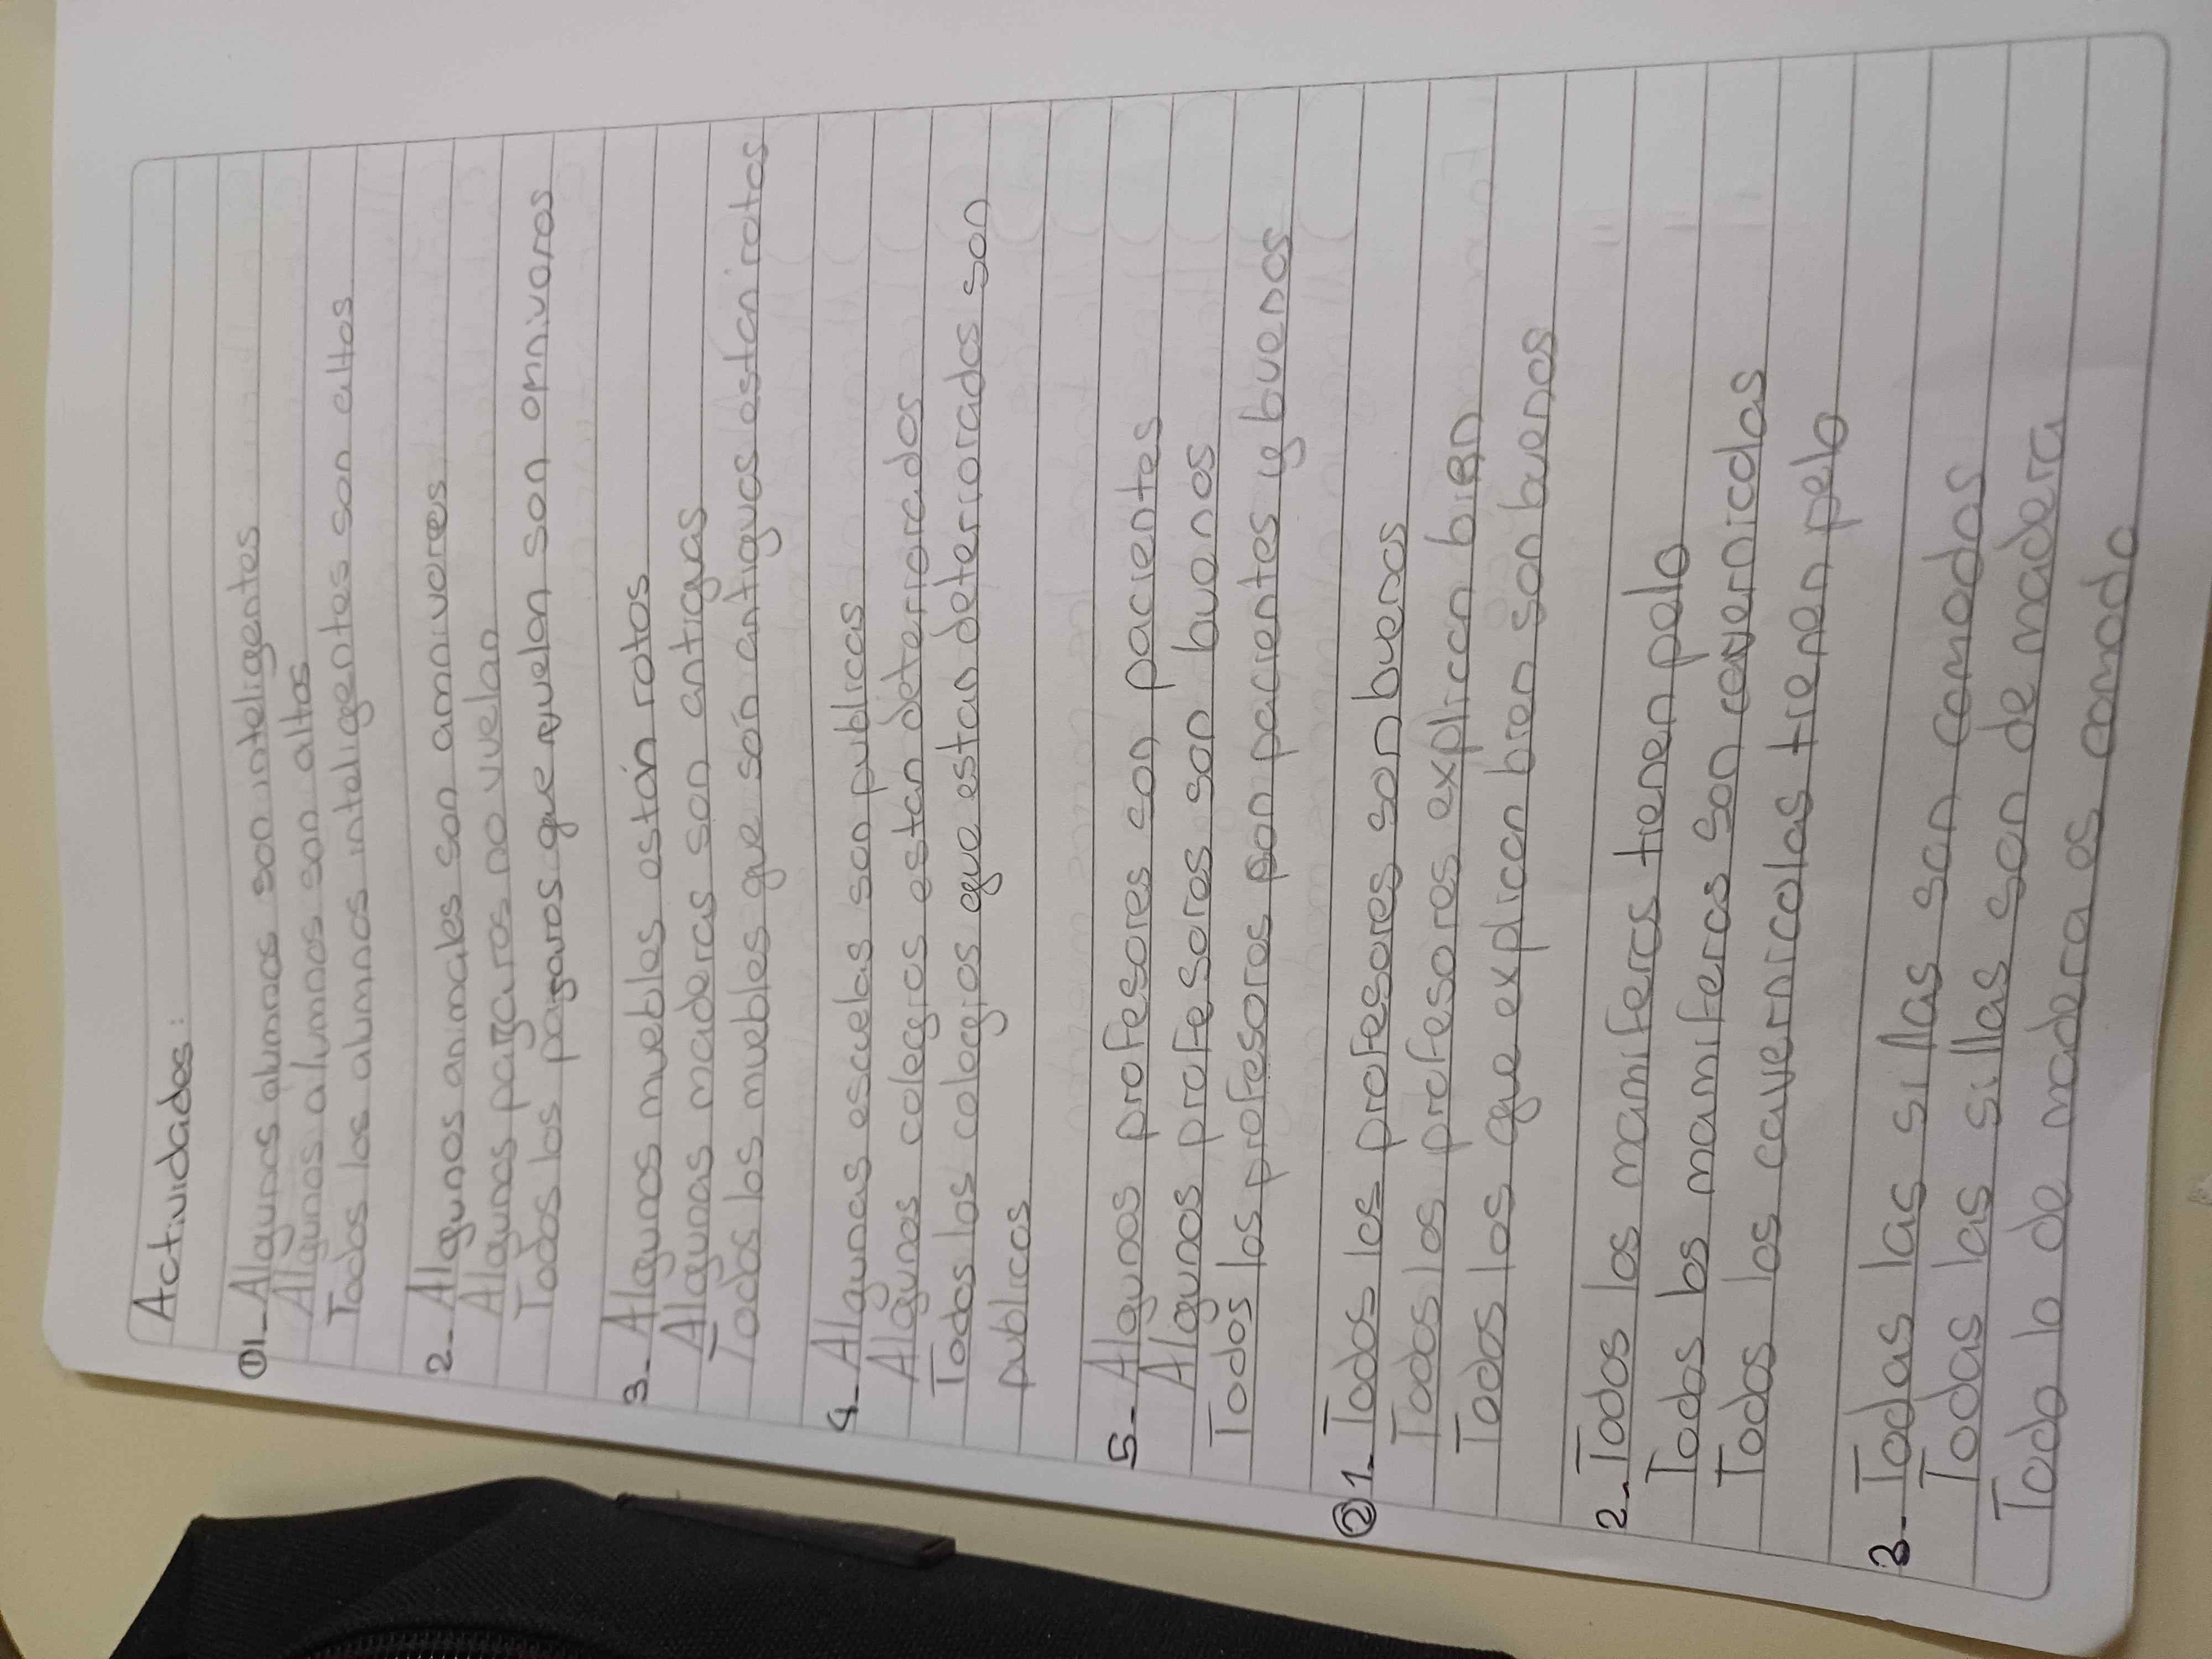 Actividades:
①1- Algunos alumnos son inteligentes
Algunos alumnos son altos
Todos los alumnos inteligentes son altos
2- Algunos animales son amnivores
Algunos pajaros no vuelan
Todos los pajaros que vuelan son omnivoros
3- Algunos muebles están rotos
Algunas maderas son antiguas
Todos los muebles que son antiguos estan rotos
4- Algunas escuelas son publicas
Algunos colegios estan deteriorados
Todos los colegios que estan deteriorados son
publicos
5- Algunos profesores son pacientes
Algunos profesores son buenos
Todos los profesores son pacientes y buenos
②1- Todos los profesores son buenos
Todos los profesores explican bien
Todos los que explican bien son buenos
2- Todos los mamiferos tienen pelo
Todos los mamiferos son cavernicolas
Todos los cavernicolas tienen pelo
3- Todas las sillas son comodas
Todas las sillas son de madera
Todo lo de madera es comodo